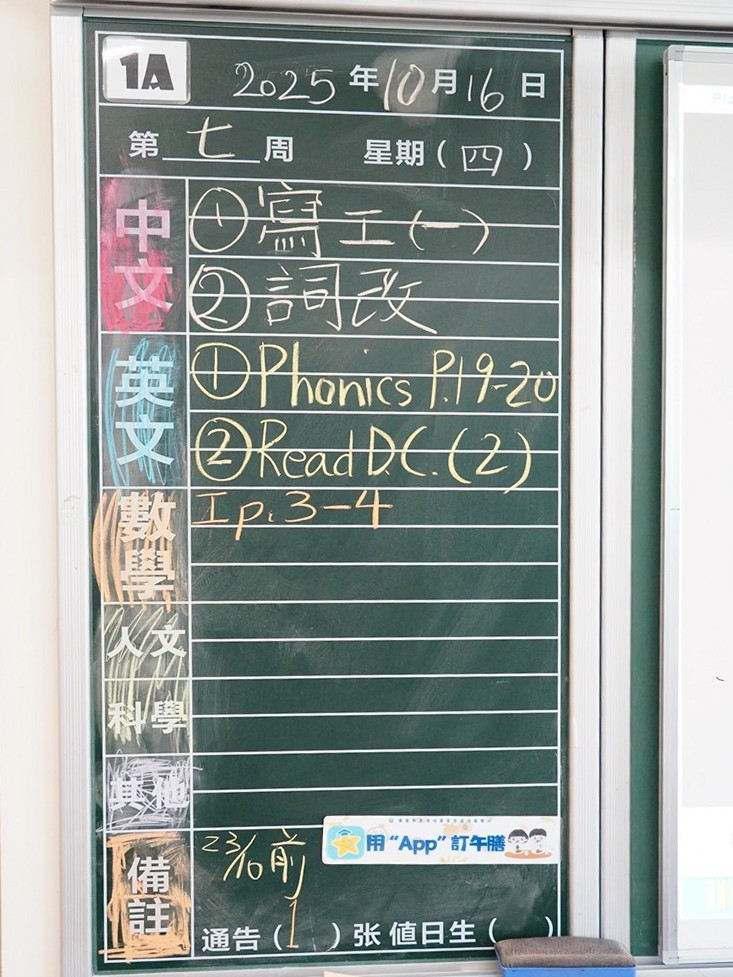 1A 2025年10月16日
第七周 星期(四)
中文
①寫工(一)
②詞改
英文
①Phonics P.19-20
②Read D.C.(2)
數學
I p.3-4
人文
科學
其他
備註
23/10前
用“App”訂午膳
通告(1)张 值日生( )